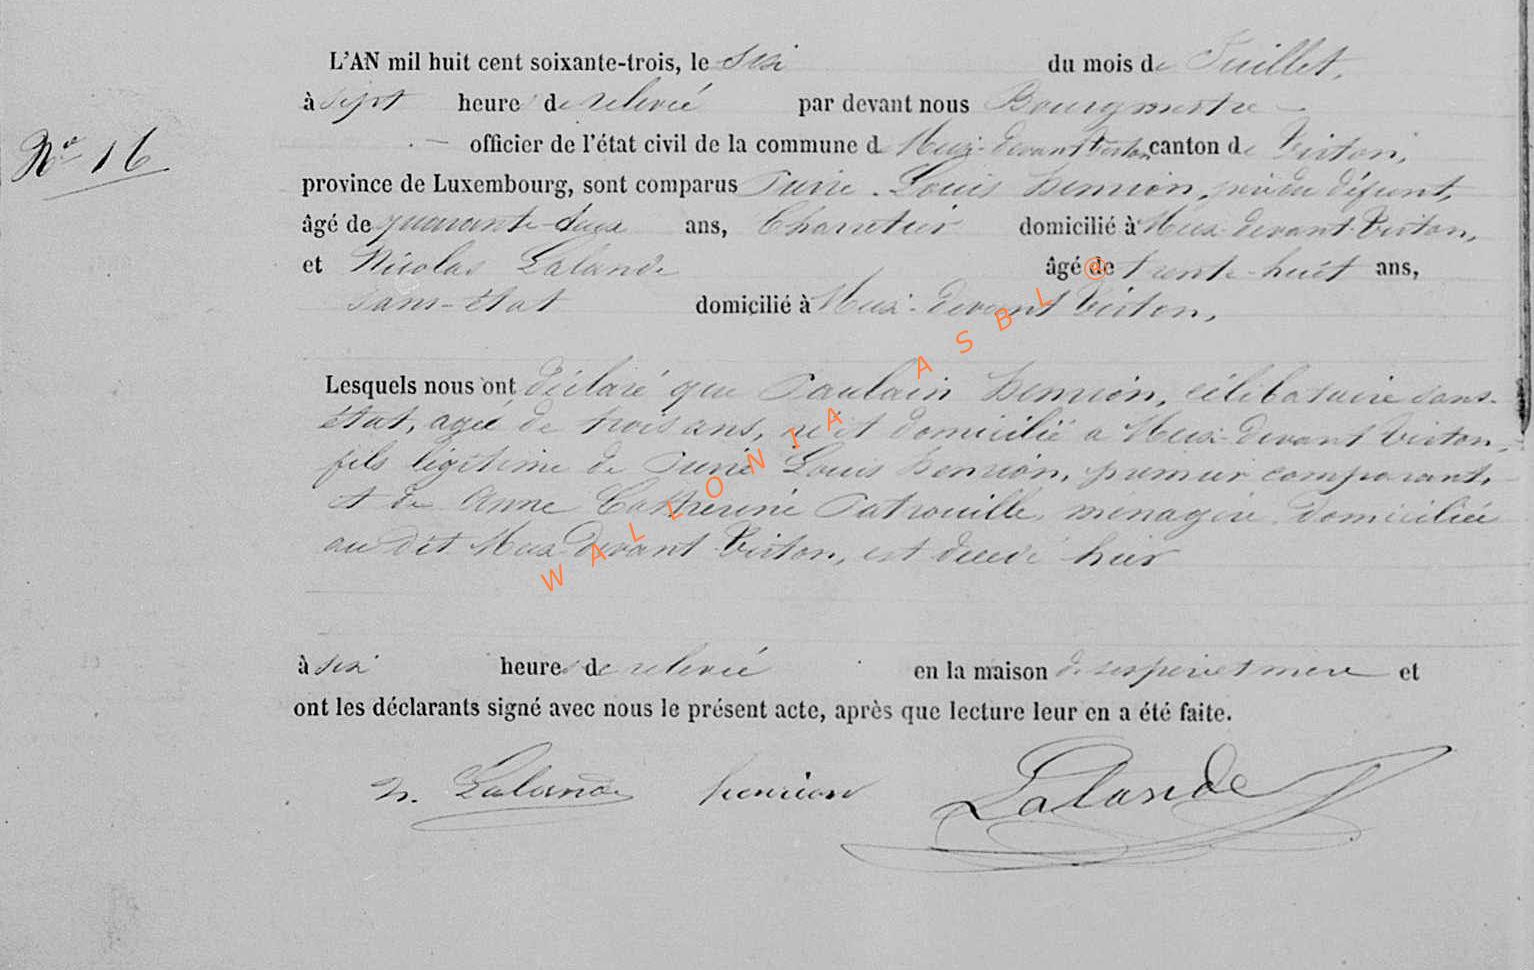 L'AN mil huit cent soixante-trois, le six du mois de Juillet,
à sept heure de relevée par devant nous Bourgmestre
N° 16
officier de l'état civil de la commune de Meix-devant Virton canton de Virton,
province de Luxembourg, sont comparus Pierre Louis Henrion, père du défunt,
âgé de quarante-deux ans, Charretier domicilié à Meix devant Virton,
et Nicolas Lalande âgé de trente-huit ans,
sans-état domicilié à Meix-devant Virton,
Lesquels nous ont déclaré que Paulain Henrion, célibataire sans-
état, agé de trois ans, né et domicilié a Meix-devant Virton,
fils légitime de Pierre Louis Henrion, premier comparant,
et de Anne Catherine Patrouille, menagère domiciliée
au dit Meix devant Virton, est décedé hier
à six heures de relevée en la maison de ses père et mère et
ont les déclarants signé avec nous le présent acte, après que lecture leur en a été faite.
N. Lalande henrion Lalande
WALLONIA ASBL @